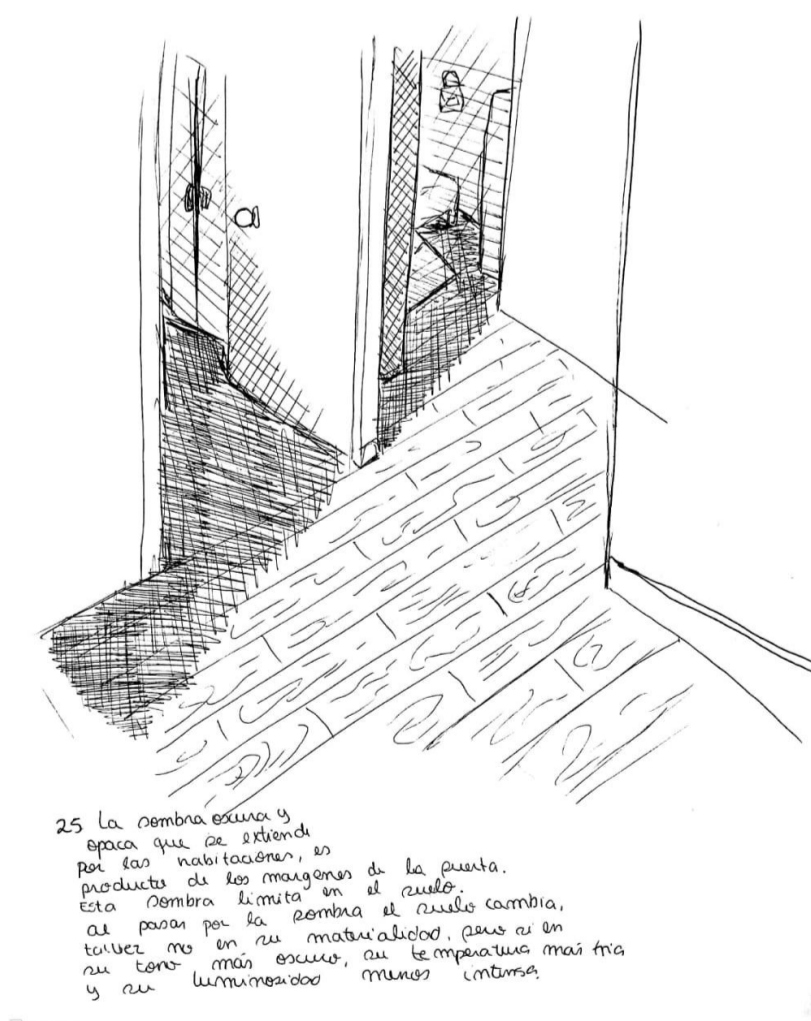 25 La sombra oscura y
opaca que se extiende
por las habitaciones, es
producto de los margenes de la puerta.
Esta sombra limita en el suelo.
al pasar por la sombra el suelo cambia,
talvez no en su materialidad, pero si en
su tono más oscuro, su temperatura más fria
y su luminosidad menos intensa.